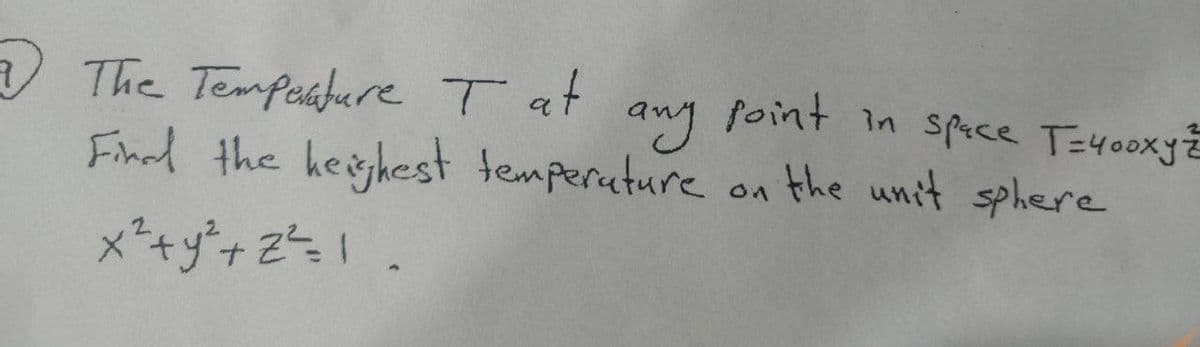 The Temperature T at any point in space T=400xyz²
Find the heighest temperature on the unit sphere
x²+y²+z²=1.